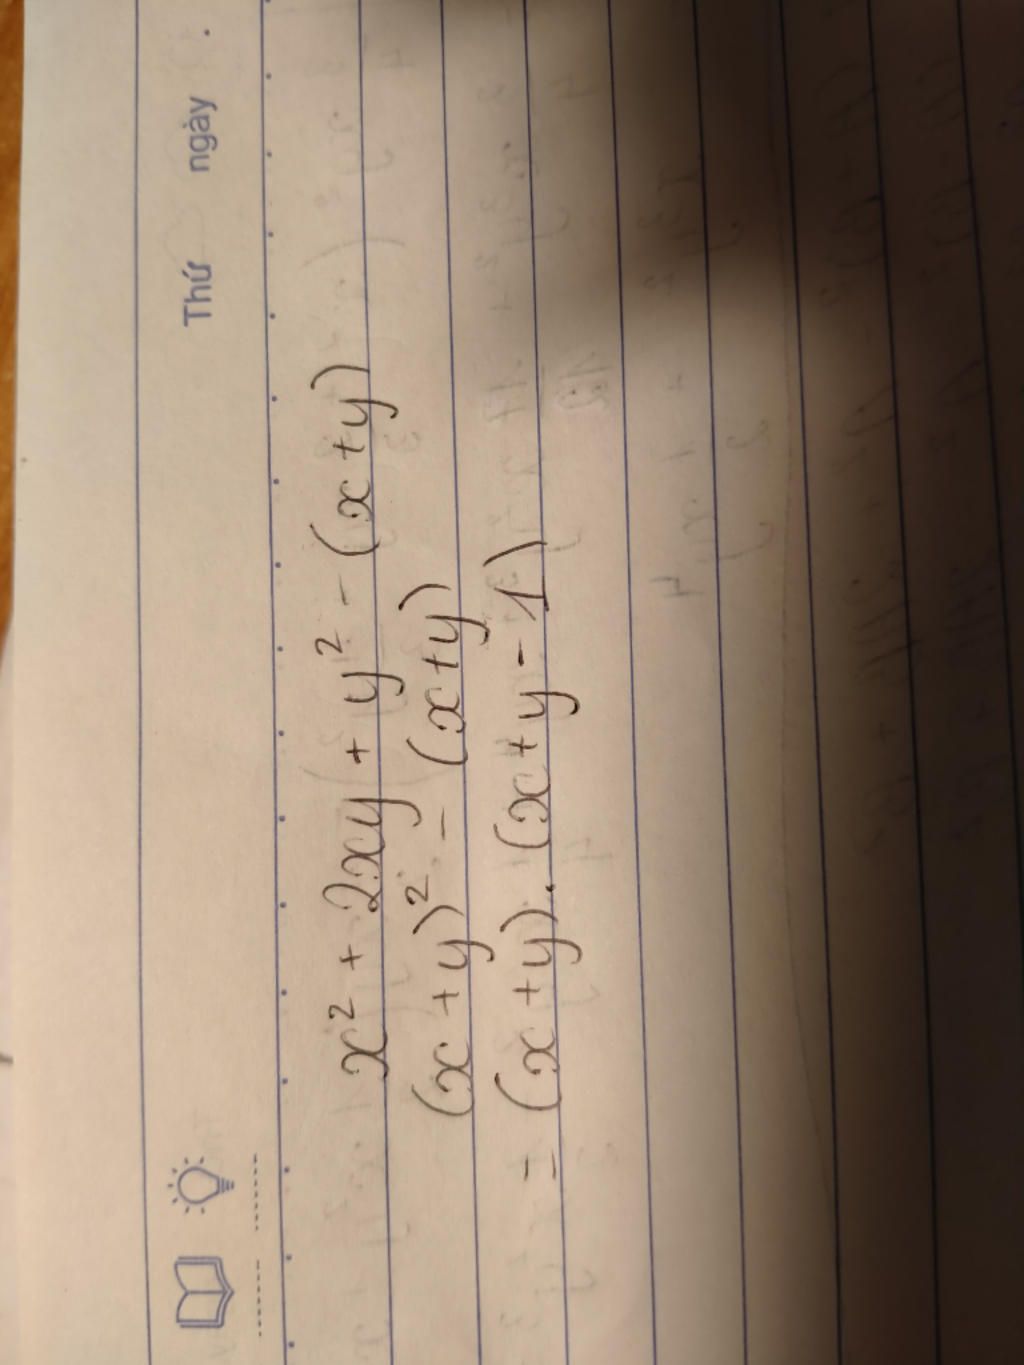 Thứ ngày .
x² + 2xy + y² - (x + y)
(x + y)² - (x + y)
= (x + y) . (x + y - 1)